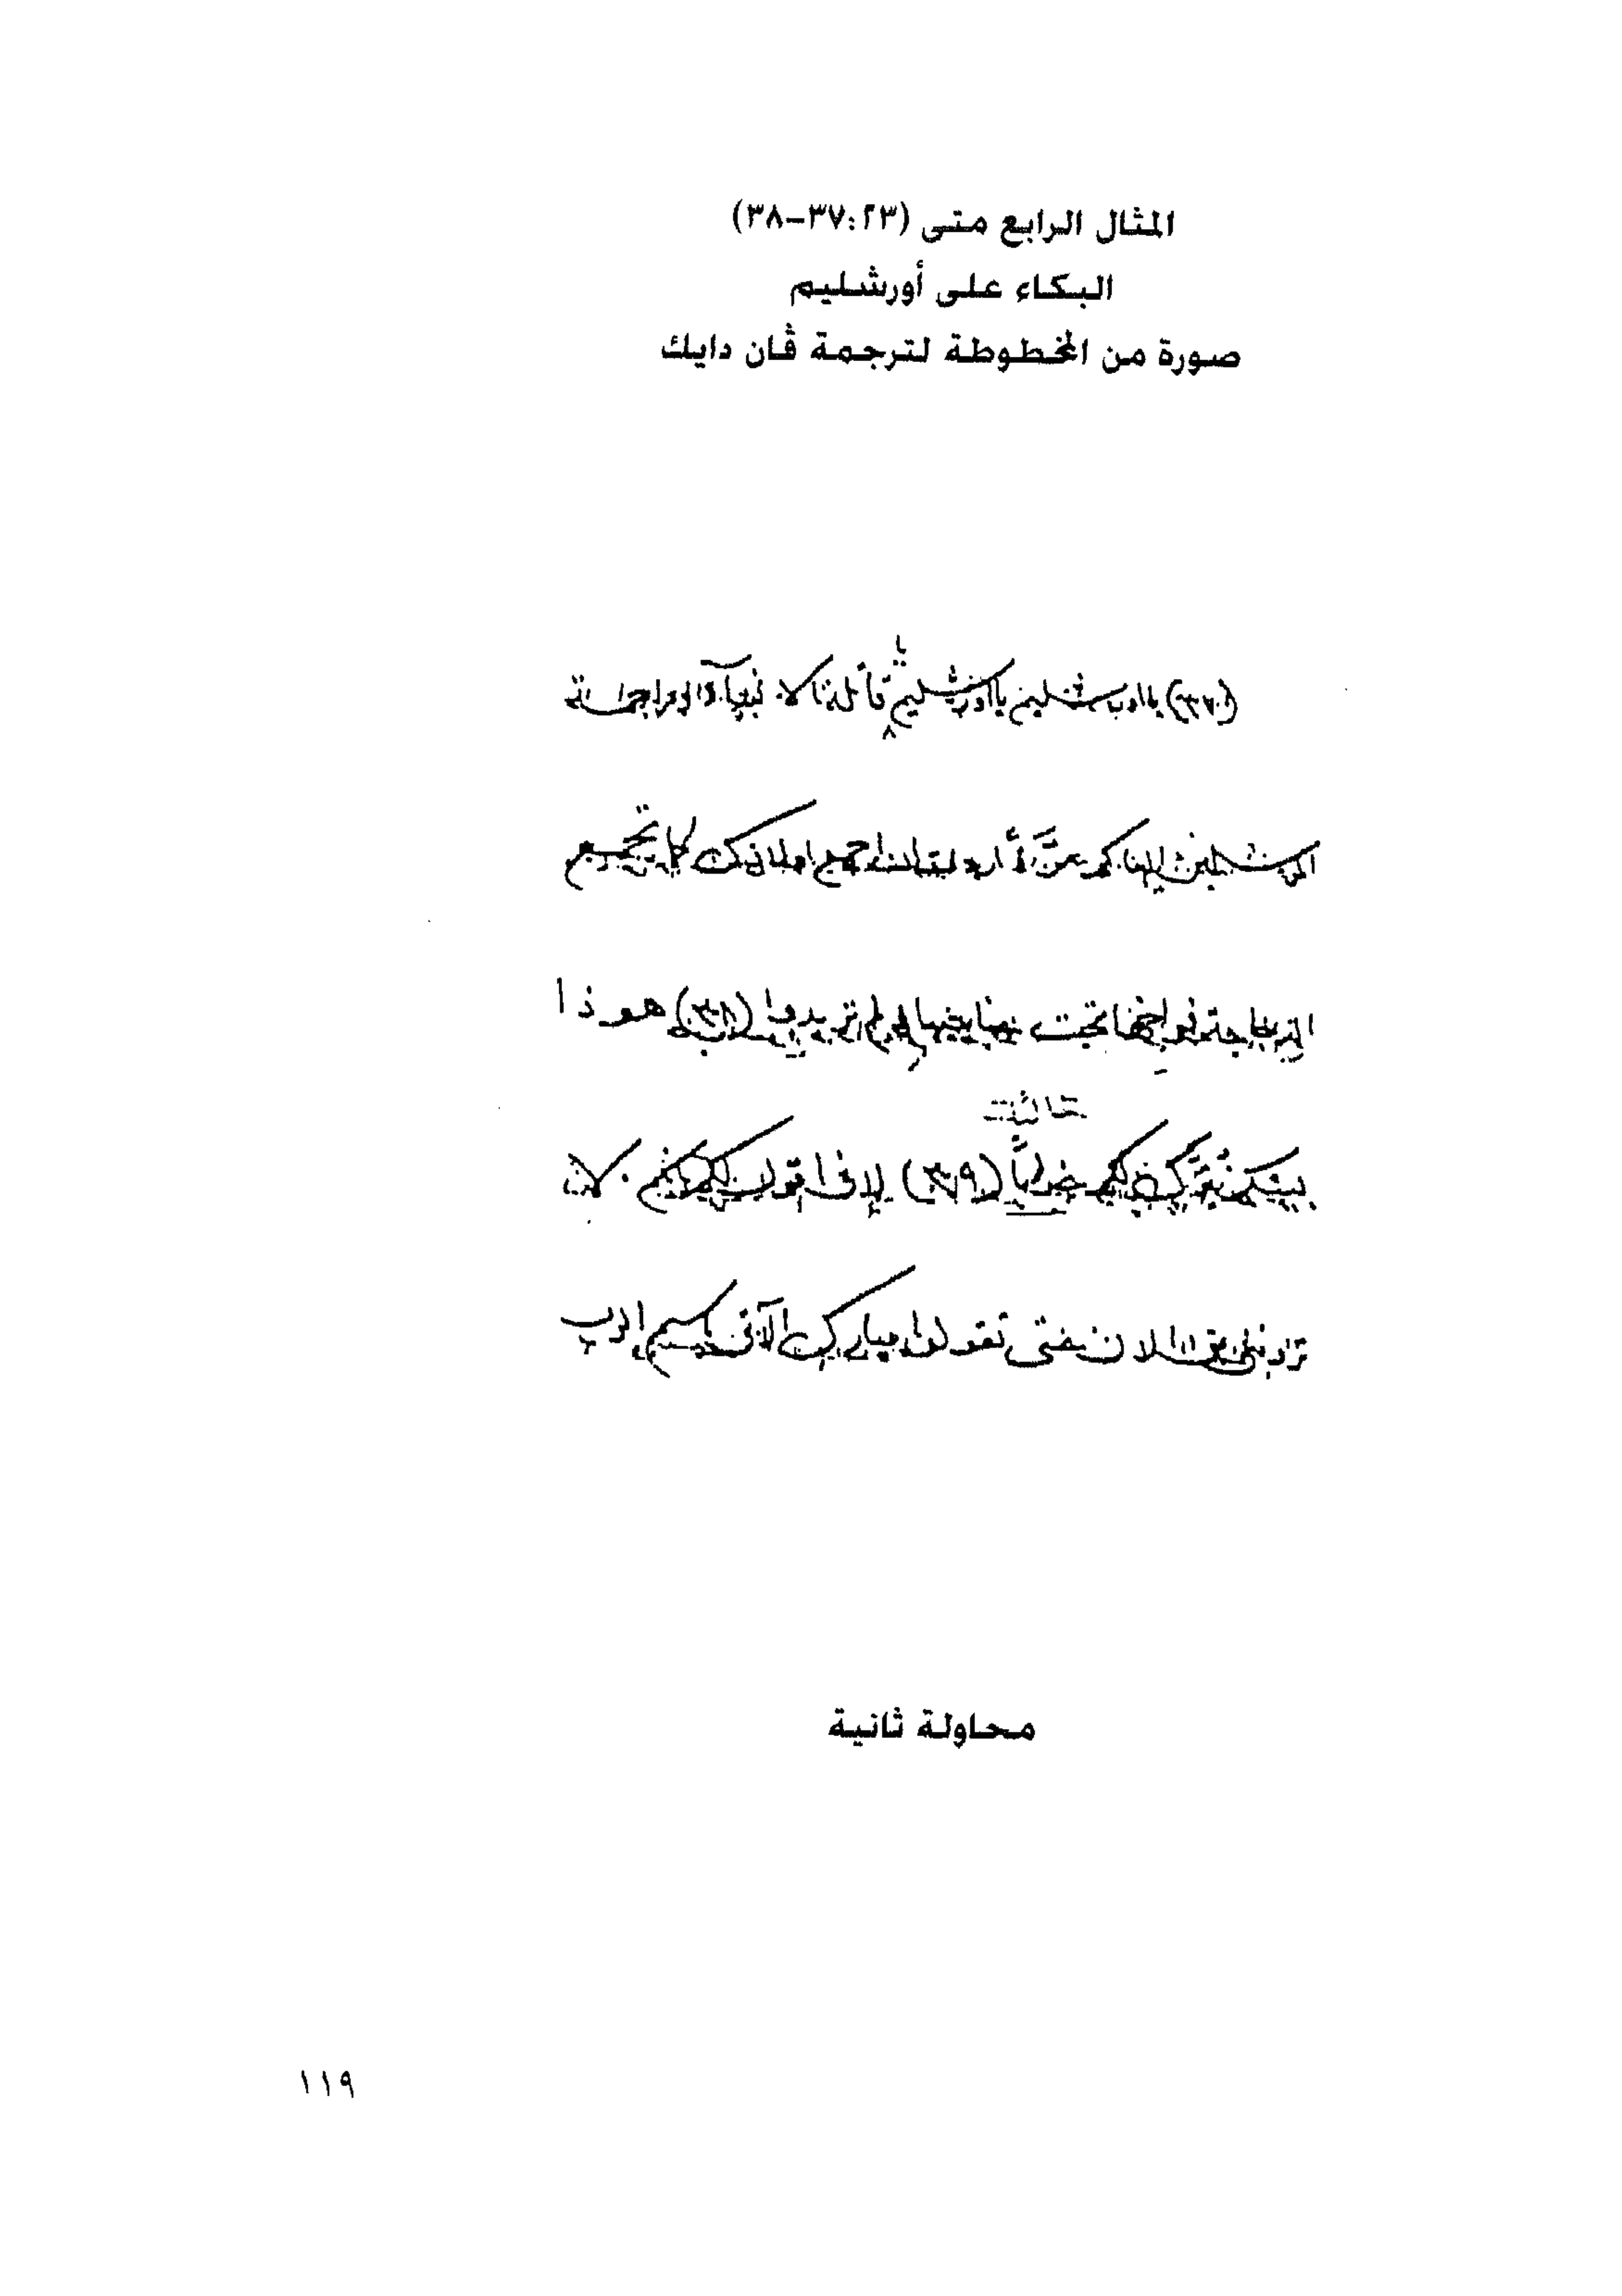 المثال الرابع متى (٢٣:٣٧-٣٨)
البكاء على أورشليم
صورة من المخطوطة لترجمة ڤان دايك
يا
(٣٧) يا اورشليم يا اورشليم قاتلة الانبيآء وراجمة
المرسلين اليها كم مرَّة أردت ان اجمع اولادك كما تجمع
الدجاجة فراخها تحت جناحيها ولم تريدوا (٣٨) هوذا
بيتكم يُترَك لكم خرابًا (٣٩) لاني اقول لكم
من الان حتى تقولوا مبارك الآتي باسم الرب
محاولة ثانية
١١٩